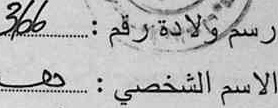 رسم ولادة رقم : 3166
الاسم الشخصي :